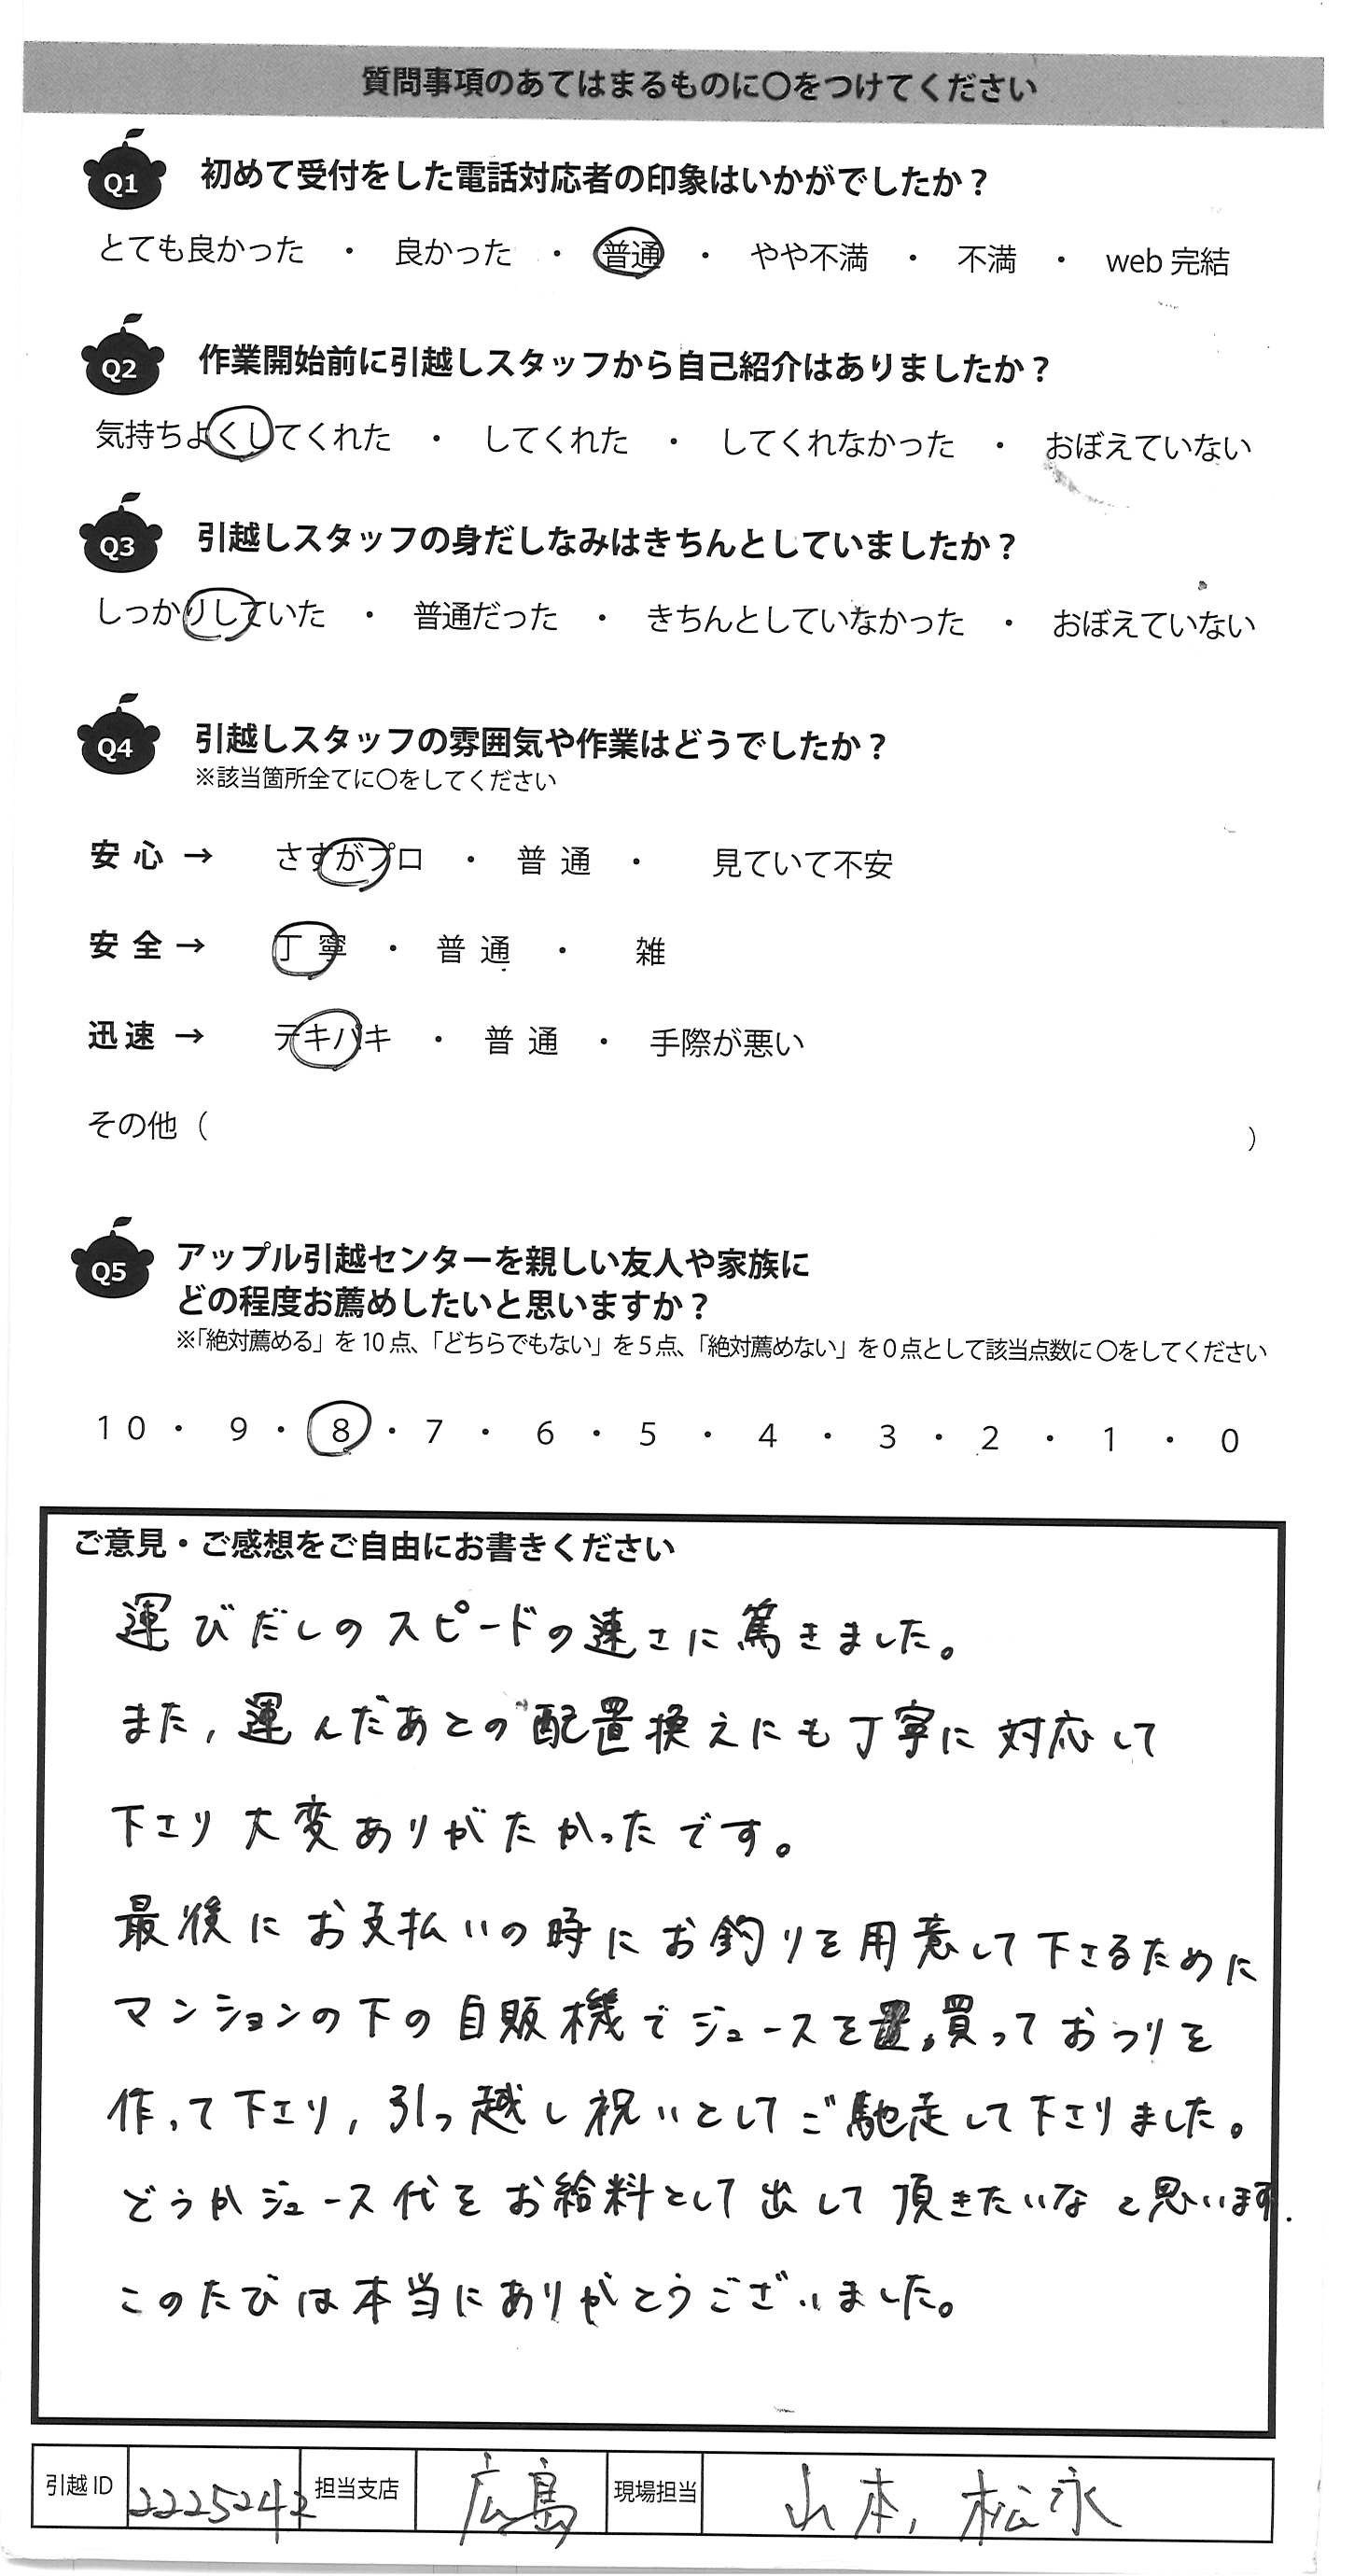 質問事項のあてはまるものに〇をつけてください
Q1 初めて受付をした電話対応者の印象はいかがでしたか？
とても良かった ・ 良かった ・ 普通 ・ やや不満 ・ 不満 ・ web 完結
Q2 作業開始前に引越しスタッフから自己紹介はありましたか？
気持ちよくしてくれた ・ してくれた ・ してくれなかった ・ おぼえていない
Q3 引越しスタッフの身だしなみはきちんとしていましたか？
しっかりしていた ・ 普通だった ・ きちんとしていなかった ・ おぼえていない
Q4 引越しスタッフの雰囲気や作業はどうでしたか？
※該当箇所全てに〇をしてください
安心 → さすがプロ ・ 普通 ・ 見ていて不安
安全 → 丁寧 ・ 普通 ・ 雑
迅速 → テキパキ ・ 普通 ・ 手際が悪い
その他（ ）
Q5 アップル引越センターを親しい友人や家族に
どの程度お薦めしたいと思いますか？
※「絶対薦める」を 10 点、「どちらでもない」を 5 点、「絶対薦めない」を 0 点として該当点数に 〇をしてください
10 ・ 9 ・ 8 ・ 7 ・ 6 ・ 5 ・ 4 ・ 3 ・ 2 ・ 1 ・ 0
ご意見・ご感想をご自由にお書きください
運びだしのスピードの速さに驚きました。
また, 運んだあとの配置換えにも丁寧に対応して
下さり大変ありがたかったです。
最後にお支払いの時にお釣りを用意して下さるために
マンションの下の自販機でジュースを買っておつりを
作って下さり, 引っ越し祝いとしてご馳走して下さりました。
どうかジュース代をお給料として出して頂きたいなと思います.
このたびは本当にありがとうございました。
引越 ID 2225242 担当支店 広島 現場担当 山本, 松永